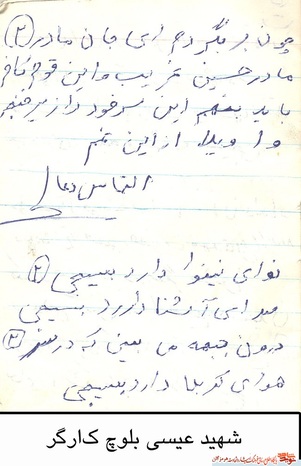 چون برنگردم ای جان مادر (۲)
مادر حسین غریب و این قوم کافر
باید بنهم این سر خود را زیر خنجر
وا ویلا از این غم
التماس دعا
نوای نینوا دارد بسیجی (۲)
صدای آشنا دارد بسیجی
درون جبهه می بینی که در سر (۲)
هوای کربلا دارد بسیجی
شهید عیسی بلوچ کارگر